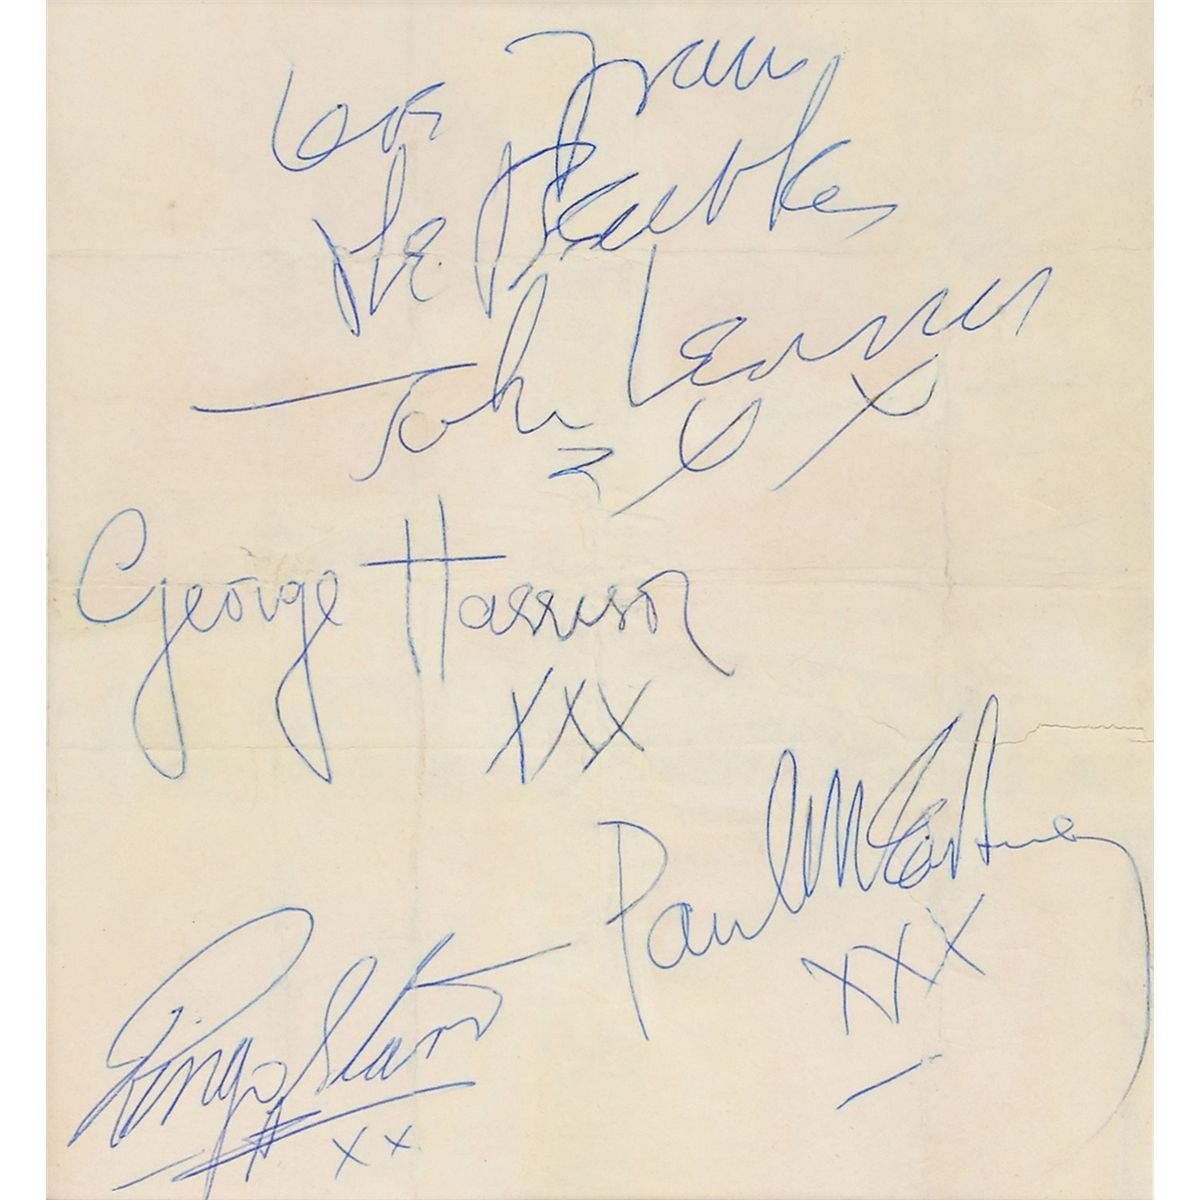 love from
The Beatles
John Lennon
xx
George Harrison
xxx
Paul McCartney
xxx
Ringo Starr
xx